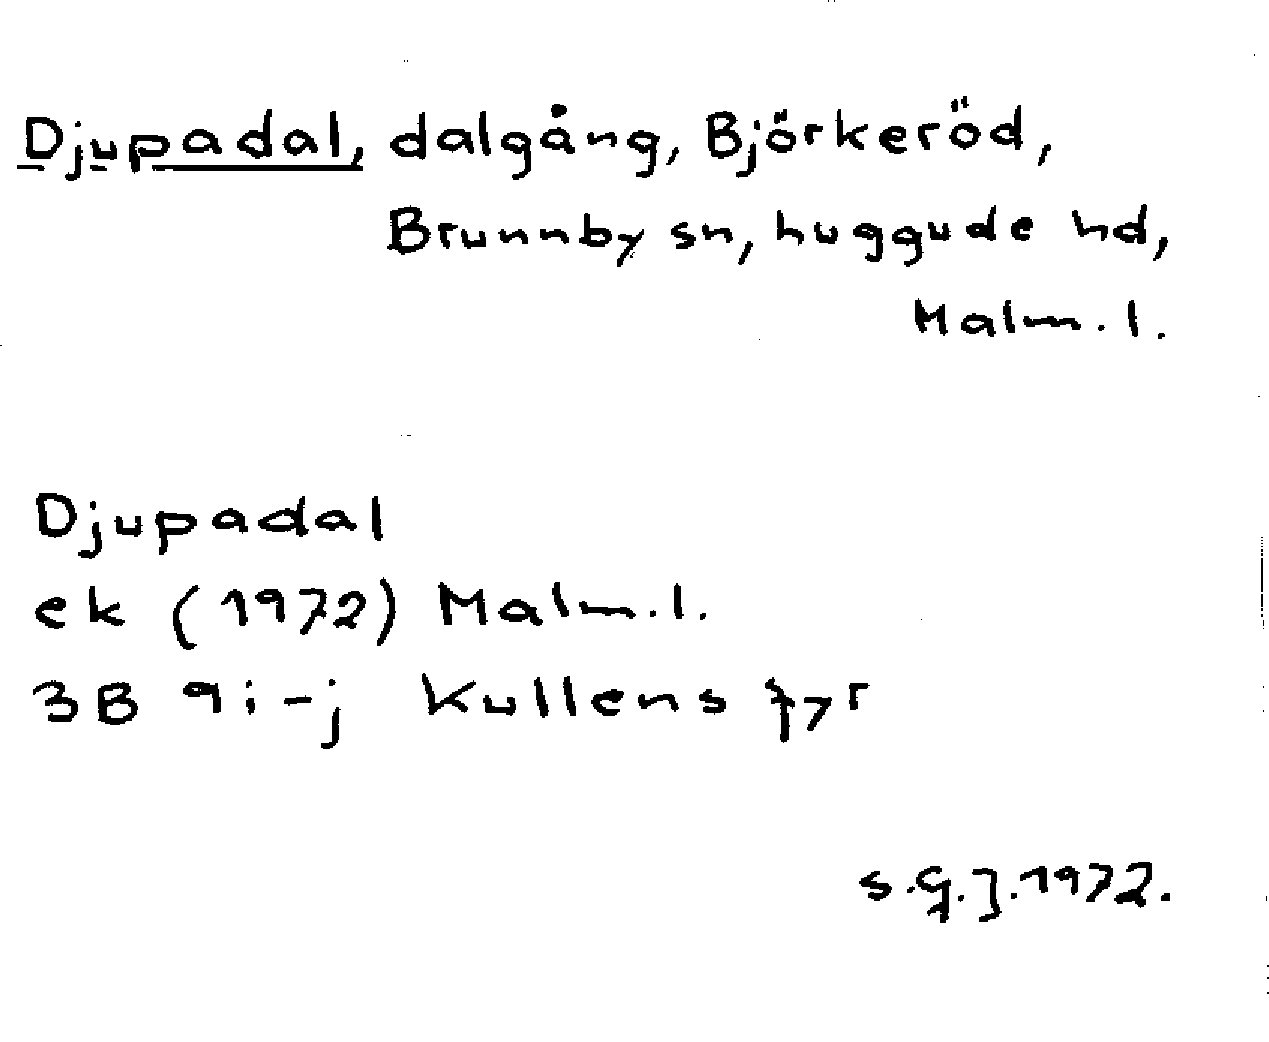 Djupadal, dalgång, Björkeröd,
Brunnby sn, huggude hd,
Malm. l.
Djupadal
ek (1972) Malm. l.
3B 9i-j Kullens fyr
S.G.J. 1972.